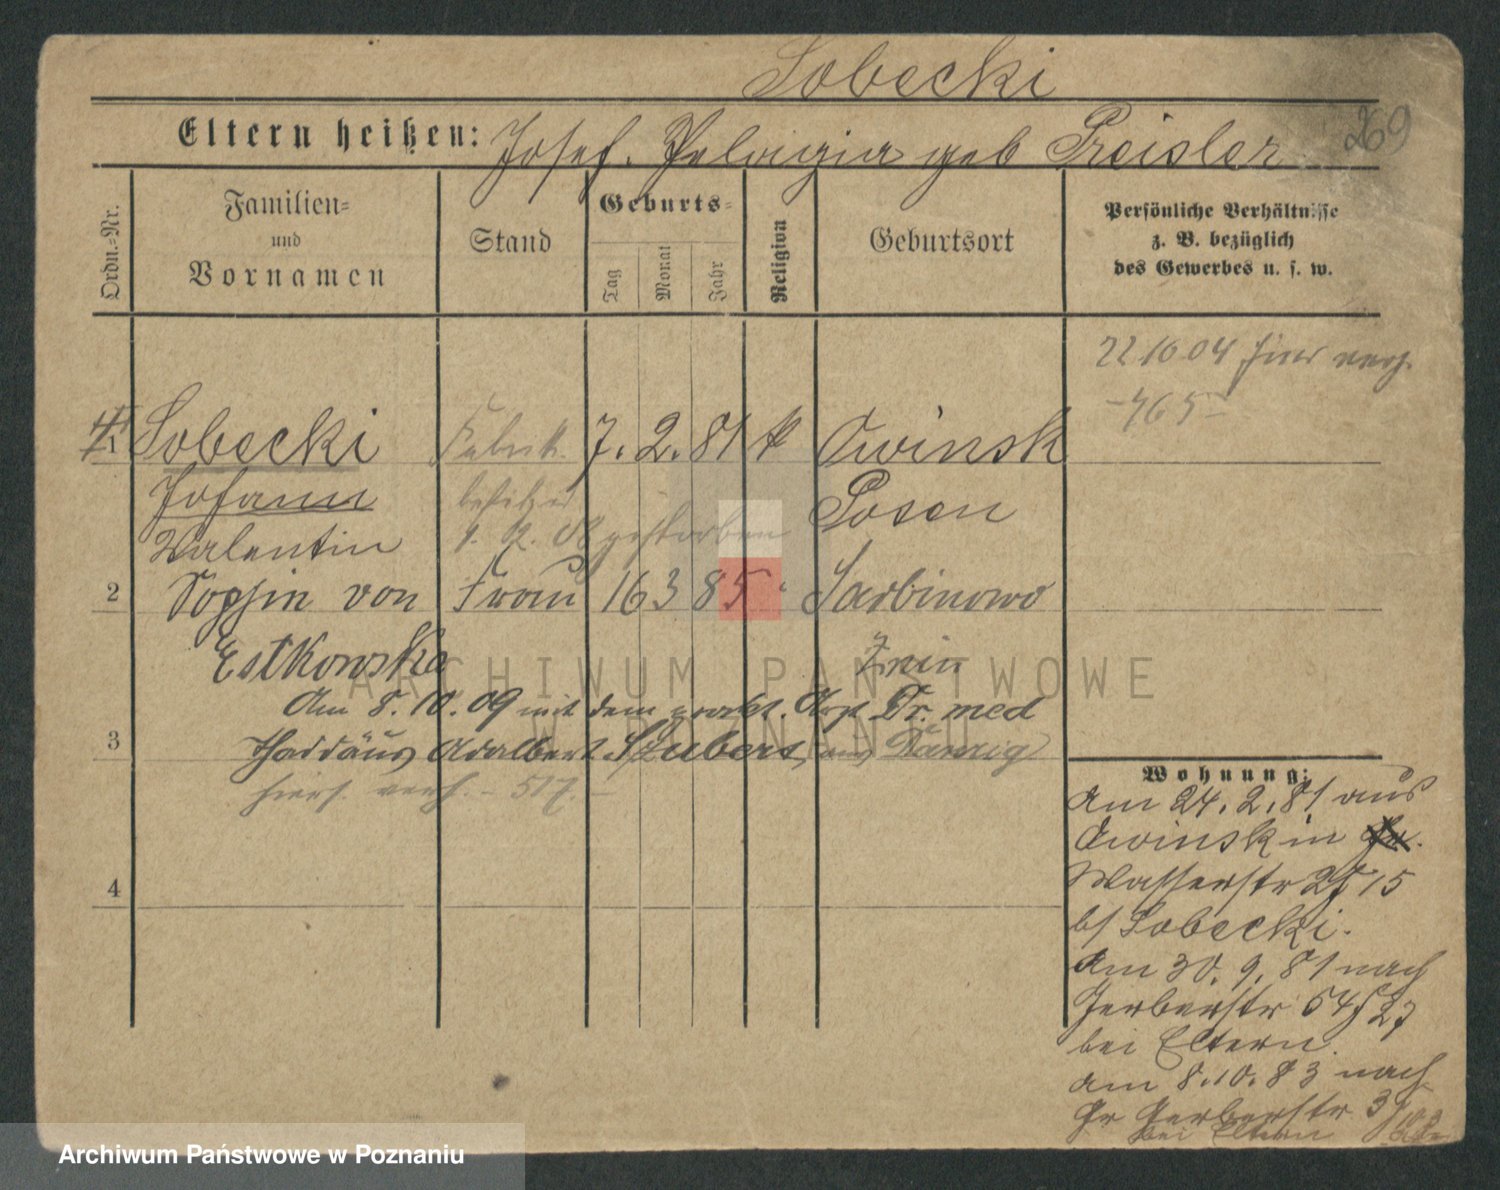 Sobecki
Eltern heißen: Josef. Pelagia geb Preisler
269
Ordn.=Nr.
Familien=
und
Vornamen
Stand
Geburts=
Tag
Monat
Jahr
Religion
Geburtsort
Persönliche Verhältnisse
z. B. bezüglich
des Gewerbes u. s. w.
22 10 04 hier verz.
-465-
1 Sobecki Fabrik 7. 2. 81 k Owinsk
Johann besitzer Posen
Valentin gestorben
2 Sophie von Frau 16 3 85 " Sarbinowo
Estkowska Znin
Am 8. 10. 09 mit dem prakt. Arzt Dr. med
3 Thaddäus Adalbert Szubers aus Danzig
hiers. verh. - 517. -
4
Wohnung:
Am 24. 2. 81 aus
Owinsk in
Wasserstr 25/15
b/ Sobecki.
Am 30. 9. 81 nach
Gerberstr 54/27
bei Eltern.
am 8. 10. 83 nach
Gr Gerberstr 39
bei Eltern
ARCHIWUM PAŃSTWOWE
W POZNANIU
Archiwum Państwowe w Poznaniu